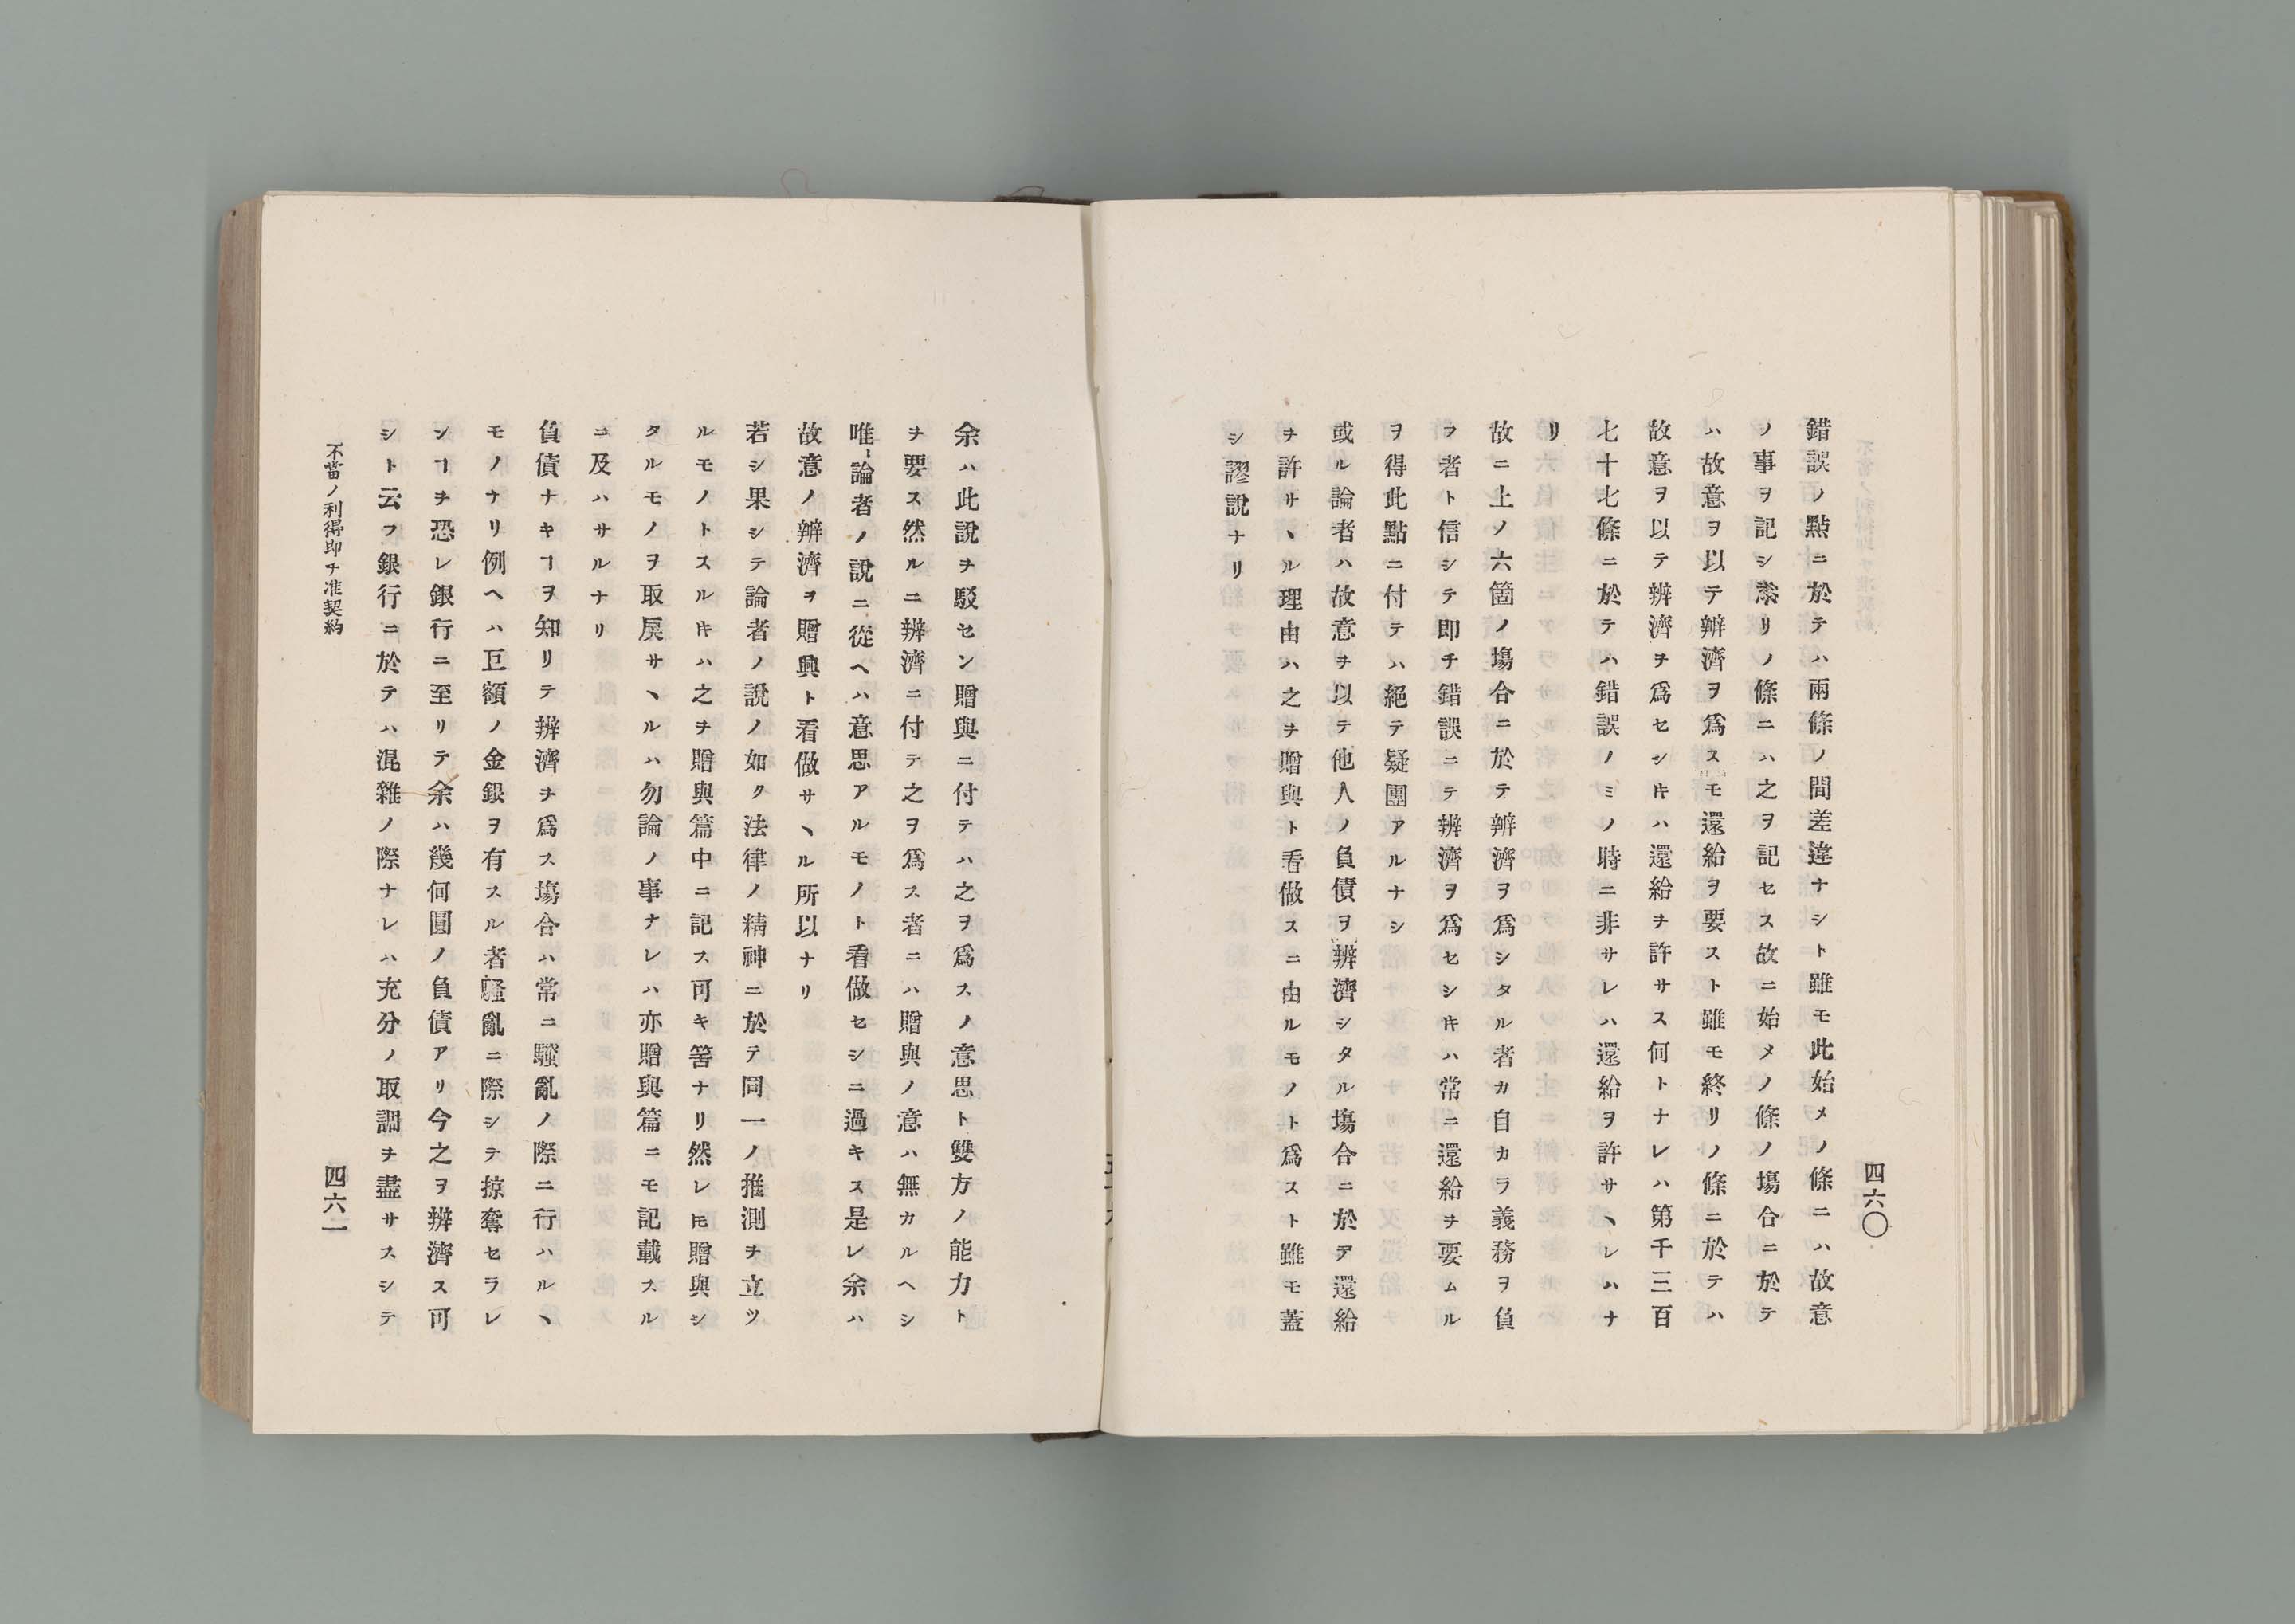 四六〇
錯誤ノ點ニ於テハ兩條ノ間差違ナシト雖モ此始メノ條ニハ故意
ノ事ヲ記シ添リノ條ニハ之ヲ記セス故ニ始メノ條ノ塲合ニ於テ
ハ故意ヲ以テ辨濟ヲ爲スモ還給ヲ要スト雖モ終リノ條ニ於テハ
故意ヲ以テ辨濟ヲ爲セシ𪜈ハ還給ヲ許サス何トナレハ第千三百
七十七條ニ於テハ錯誤ノミノ時ニ非サレハ還給ヲ許サヽレハナ
リ
故ニ上ノ六箇ノ塲合ニ於テ辨濟ヲ爲シタル者カ自カラ義務ヲ負
フ者ト信シテ即チ錯誤ニテ辨濟ヲ爲セシ𪜈ハ常ニ還給ヲ要ムル
ヲ得此點ニ付テハ絕テ疑團アルナシ
或ル論者ハ故意ヲ以テ他人ノ負債ヲ辨濟シタル塲合ニ於テ還給
ヲ許サヽル理由ハ之ヲ贈與ト看做スニ由ルモノト爲スト雖モ蓋
シ謬說ナリ
余ハ此說ヲ駁セン贈與ニ付テハ之ヲ爲スノ意思ト雙方ノ能力ト
ヲ要ス然ルニ辨濟ニ付テ之ヲ爲ス者ニハ贈與ノ意ハ無カルヘシ
唯論者ノ說ニ從ヘハ意思アルモノト看做セシニ過キス是レ余ハ
故意ノ辨濟ヲ贈與ト看做サヽル所以ナリ
若シ果シテ論者ノ說ノ如ク法律ノ精神ニ於テ同一ノ推測ヲ立ツ
ルモノトスル𪜈ハ之ヲ贈與篇中ニ記ス可キ筈ナリ然レ𪜈贈與シ
タルモノヲ取戾サヽルハ勿論ノ事ナレハ亦贈與篇ニモ記載スル
ニ及ハサルナリ
負債ナキヿヲ知リテ辨濟ヲ爲ス塲合ハ常ニ騷亂ノ際ニ行ハルヽ
モノナリ例ヘハ巨額ノ金銀ヲ有スル者騷亂ニ際シテ掠奪セラレ
ンヿヲ恐レ銀行ニ至リテ余ハ幾何圓ノ負債アリ今之ヲ辨濟ス可
シト云フ銀行ニ於テハ混雜ノ際ナレハ充分ノ取調ヲ盡サスシテ
不當ノ利得即チ准契約
四六一